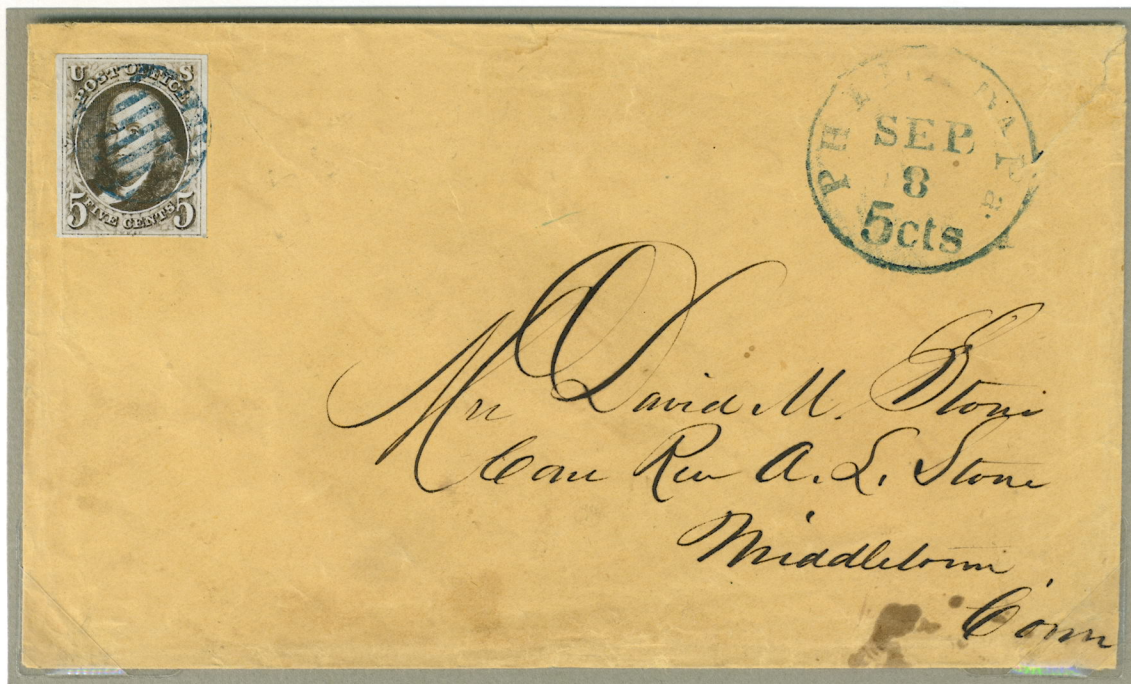 U S
POST OFFICE
5 5
FIVE CENTS
SEP
8
5cts
Mr David M. Stone
Care Rev A. L. Stone
Middletown
Conn